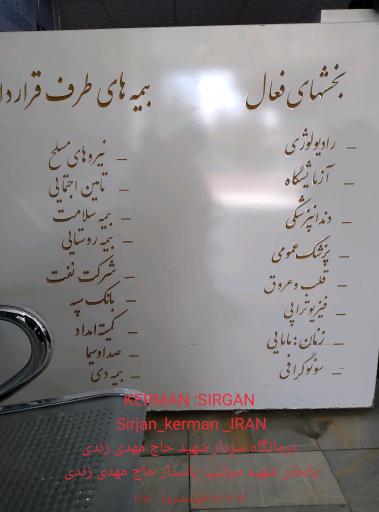 بخشهای فعال
– رادیولوژی
– آزمایشگاه
– دندانپزشکی
– پزشک عمومی
– قلب و عروق
– فیزیوتراپی
– زنان و مامایی
– سونوگرافی
بیمه های طرف قرارداد
– نیروهای مسلح
– تامین اجتماعی
– بیمه سلامت
– بیمه روستایی
– شرکت نفت
– بانک سپه
– کمیته امداد
– صدا و سیما
– بیمه دی
KERMAN :SIRGAN
Sirjan_kerman _IRAN
درمانگاه سردار شهید حاج مهدی زندی
پاسدار حاج مهدی زندی